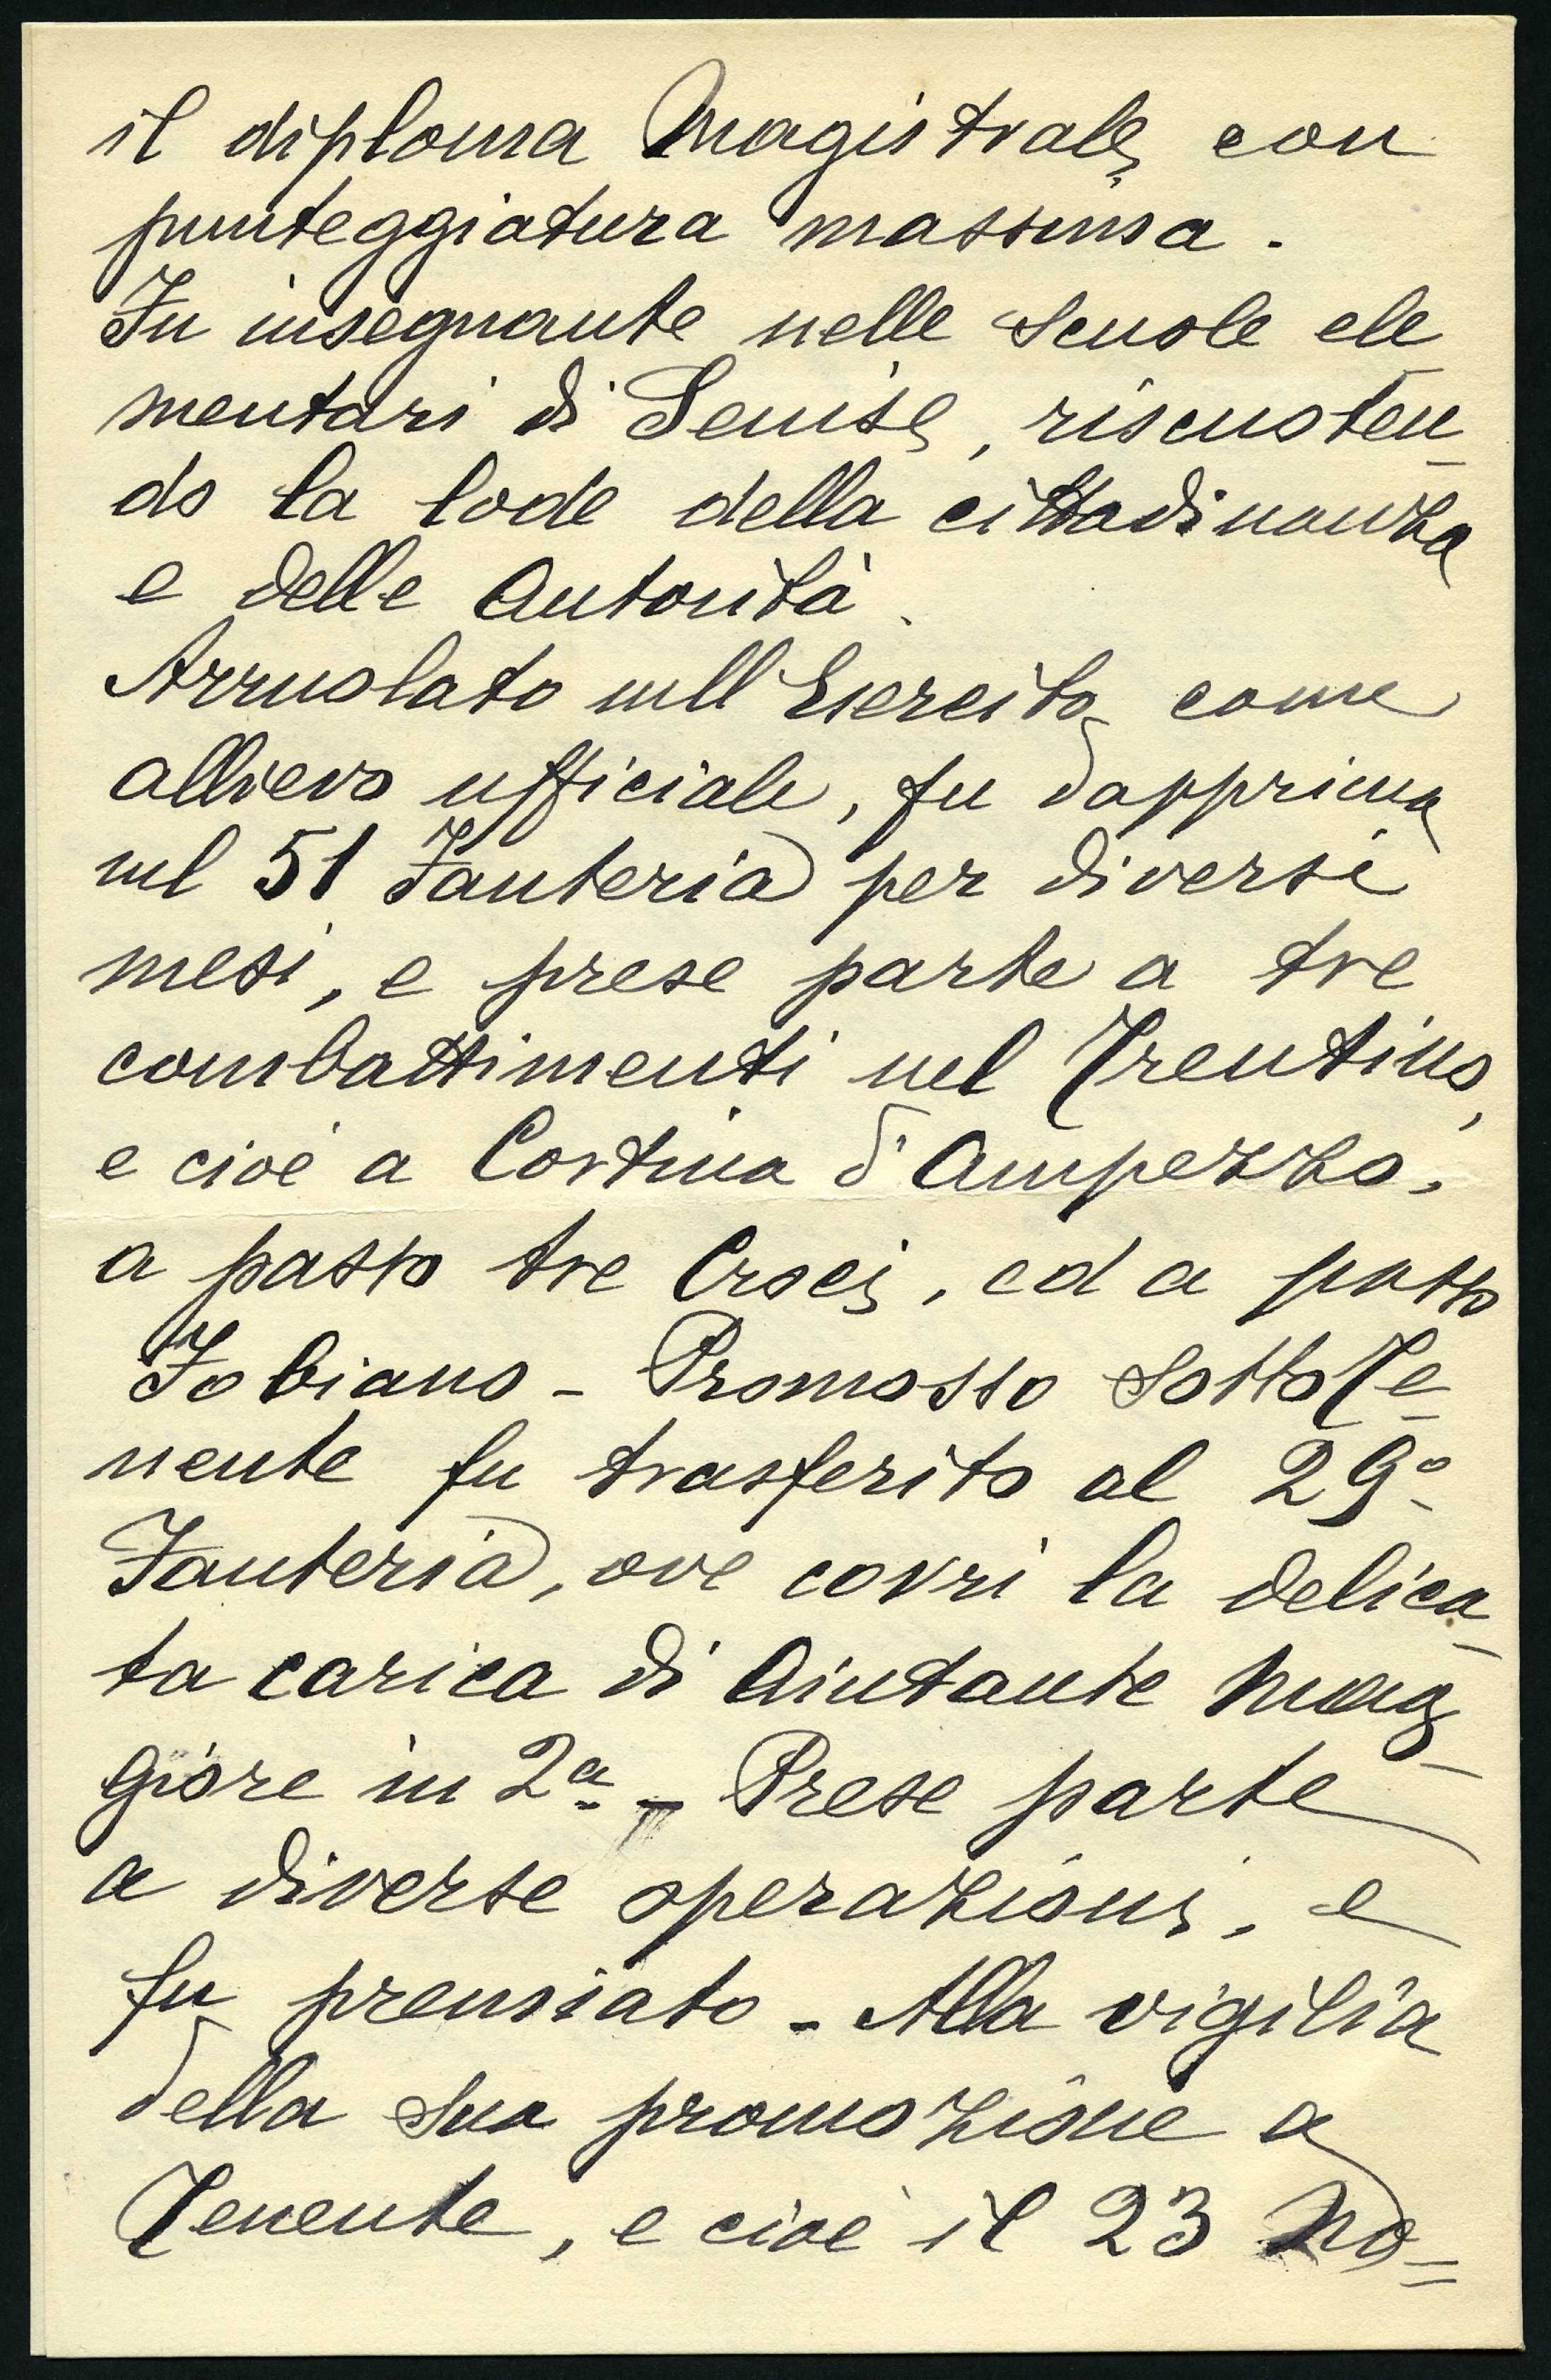 il diploma Magistrale con
punteggiatura massima.
Fu insegnante nelle scuole ele_
mentari di Senise, riscuoten_
do la lode della cittadinanza
e delle Autorità.
Arruolato nell'Esercito come
allievo ufficiale, fu dapprima
nel 51 Fanteria per diversi
mesi, e prese parte a tre
combattimenti nel Trentino,
e cioè a Cortina d'Ampezzo,
a passo tre Croci, ed a passo
Fobiano - Promosso SottoTe_
nente fu trasferito al 29º
Fanteria, ove covri la delica_
ta carica di Aiutante Mag_
giore in 2ª - Prese parte
a diverse operazioni, e
fu premiato - Alla vigilia
della sua promozione a
Tenente, e cioè il 23 No=